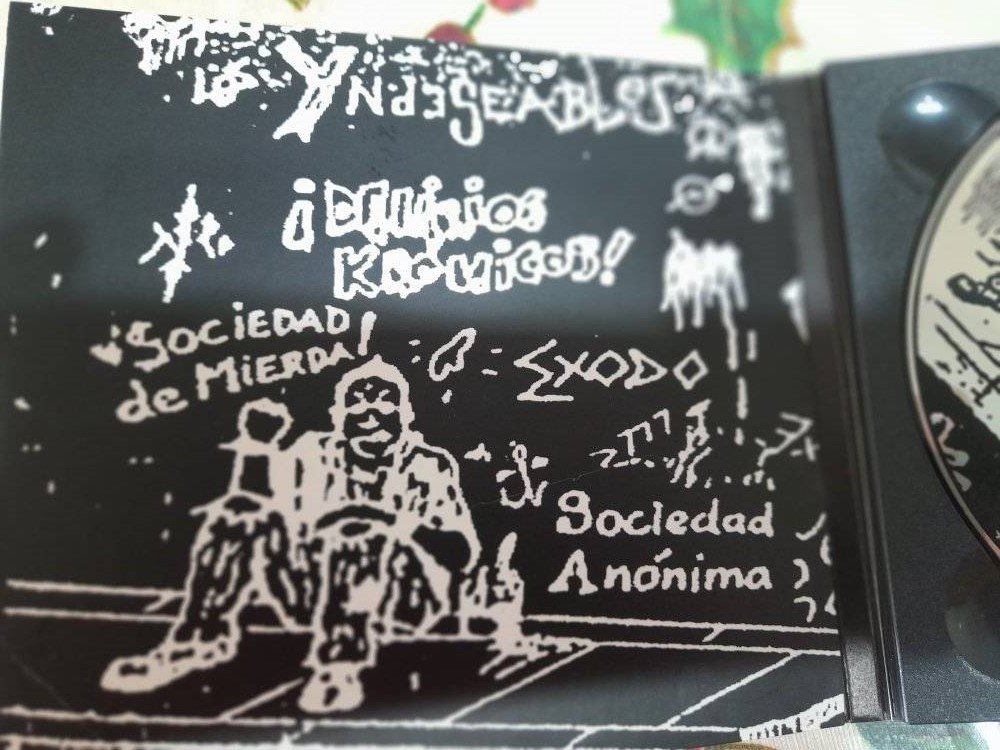 los YNDESEABLES
¡DELIRIOS
KRONICOS!
¡SOCIEDAD
de MIERDA!
EXODO
Sociedad
Anónima